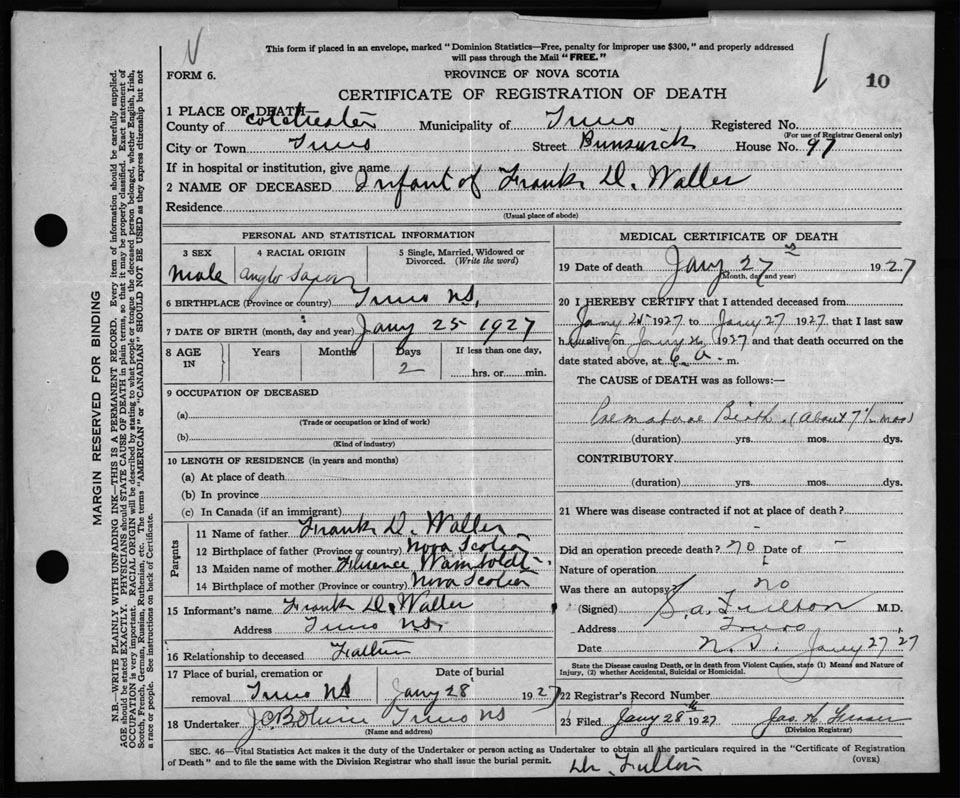 This form if placed in an envelope, marked "Dominion Statistics—Free, penalty for improper use $300," and properly addressed
will pass through the Mail "FREE."
FORM 6.
PROVINCE OF NOVA SCOTIA
10
CERTIFICATE OF REGISTRATION OF DEATH
1 PLACE OF DEATH—
County of Colchester Municipality of Truro Registered No.
(For use of Registrar General only)
City or Town Truro Street Brunswick House No. 97
If in hospital or institution, give name
2 NAME OF DECEASED Infant of Frank D. Waller
Residence
(Usual place of abode)
PERSONAL AND STATISTICAL INFORMATION
3 SEX 4 RACIAL ORIGIN 5 Single, Married, Widowed or
Divorced. (Write the word)
Male Anglo Saxon
6 BIRTHPLACE (Province or country) Truro NS.
7 DATE OF BIRTH (month, day and year) Jany 25 1927
8 AGE IN Years Months Days If less than one day,
2 hrs. or min.
9 OCCUPATION OF DECEASED
(a)
(Trade or occupation or kind of work)
(b)
(Kind of industry)
10 LENGTH OF RESIDENCE (in years and months)
(a) At place of death
(b) In province
(c) In Canada (if an immigrant)
Parents
11 Name of father Frank D. Waller
12 Birthplace of father (Province or country) Nova Scotia
13 Maiden name of mother Florence Wamboldt
14 Birthplace of mother (Province or country) Nova Scotia
15 Informant's name Frank D. Waller
Address Truro NS.
16 Relationship to deceased Father
17 Place of burial, cremation or Date of burial
removal Truro NS Jany 28 1927
18 Undertaker Truro NS
(Name and address)
MEDICAL CERTIFICATE OF DEATH
19 Date of death Jany 27 1927
(Month, day and year)
20 I HEREBY CERTIFY that I attended deceased from
Jany 25 1927 to Jany 27 1927 that I last saw
h alive on Jany 26 1927 and that death occurred on the
date stated above, at 6 a. m.
The CAUSE of DEATH was as follows:—
Premature Birth. (About 7 mos)
(duration) yrs. mos. dys.
CONTRIBUTORY
(duration) yrs. mos. dys.
21 Where was disease contracted if not at place of death?
-
Did an operation precede death? no Date of -
Nature of operation
Was there an autopsy? no
(Signed) S. A. Fulton M.D.
Address Truro
Date N.S. Jany 27 27
State the Disease causing Death, or in death from Violent Causes, state (1) Means and Nature of
Injury, (2) whether Accidental, Suicidal or Homicidal.
22 Registrar's Record Number
23 Filed Jany 28th 1927 Jas. H. Fraser
(Division Registrar)
SEC. 46—Vital Statistics Act makes it the duty of the Undertaker or person acting as Undertaker to obtain all the particulars required in the "Certificate of Registration
of Death" and to file the same with the Division Registrar who shall issue the burial permit.
(OVER)
Dr. Fulton
MARGIN RESERVED FOR BINDING
N.B.—WRITE PLAINLY WITH UNFADING INK—THIS IS A PERMANENT RECORD. Every item of information should be carefully supplied.
AGE should be stated EXACTLY. PHYSICIANS should STATE CAUSE OF DEATH in plain terms, so that it may be properly classified. Exact statement of
OCCUPATION is very important. RACIAL ORIGIN will be described by stating to what people or tongue the deceased person belonged, whether English, Irish,
Scotch, French, German, Russian, Ruthenian, etc. The terms "AMERICAN" or "CANADIAN" SHOULD NOT BE USED as they express citizenship but not
a race or people. See instructions on back of Certificate.